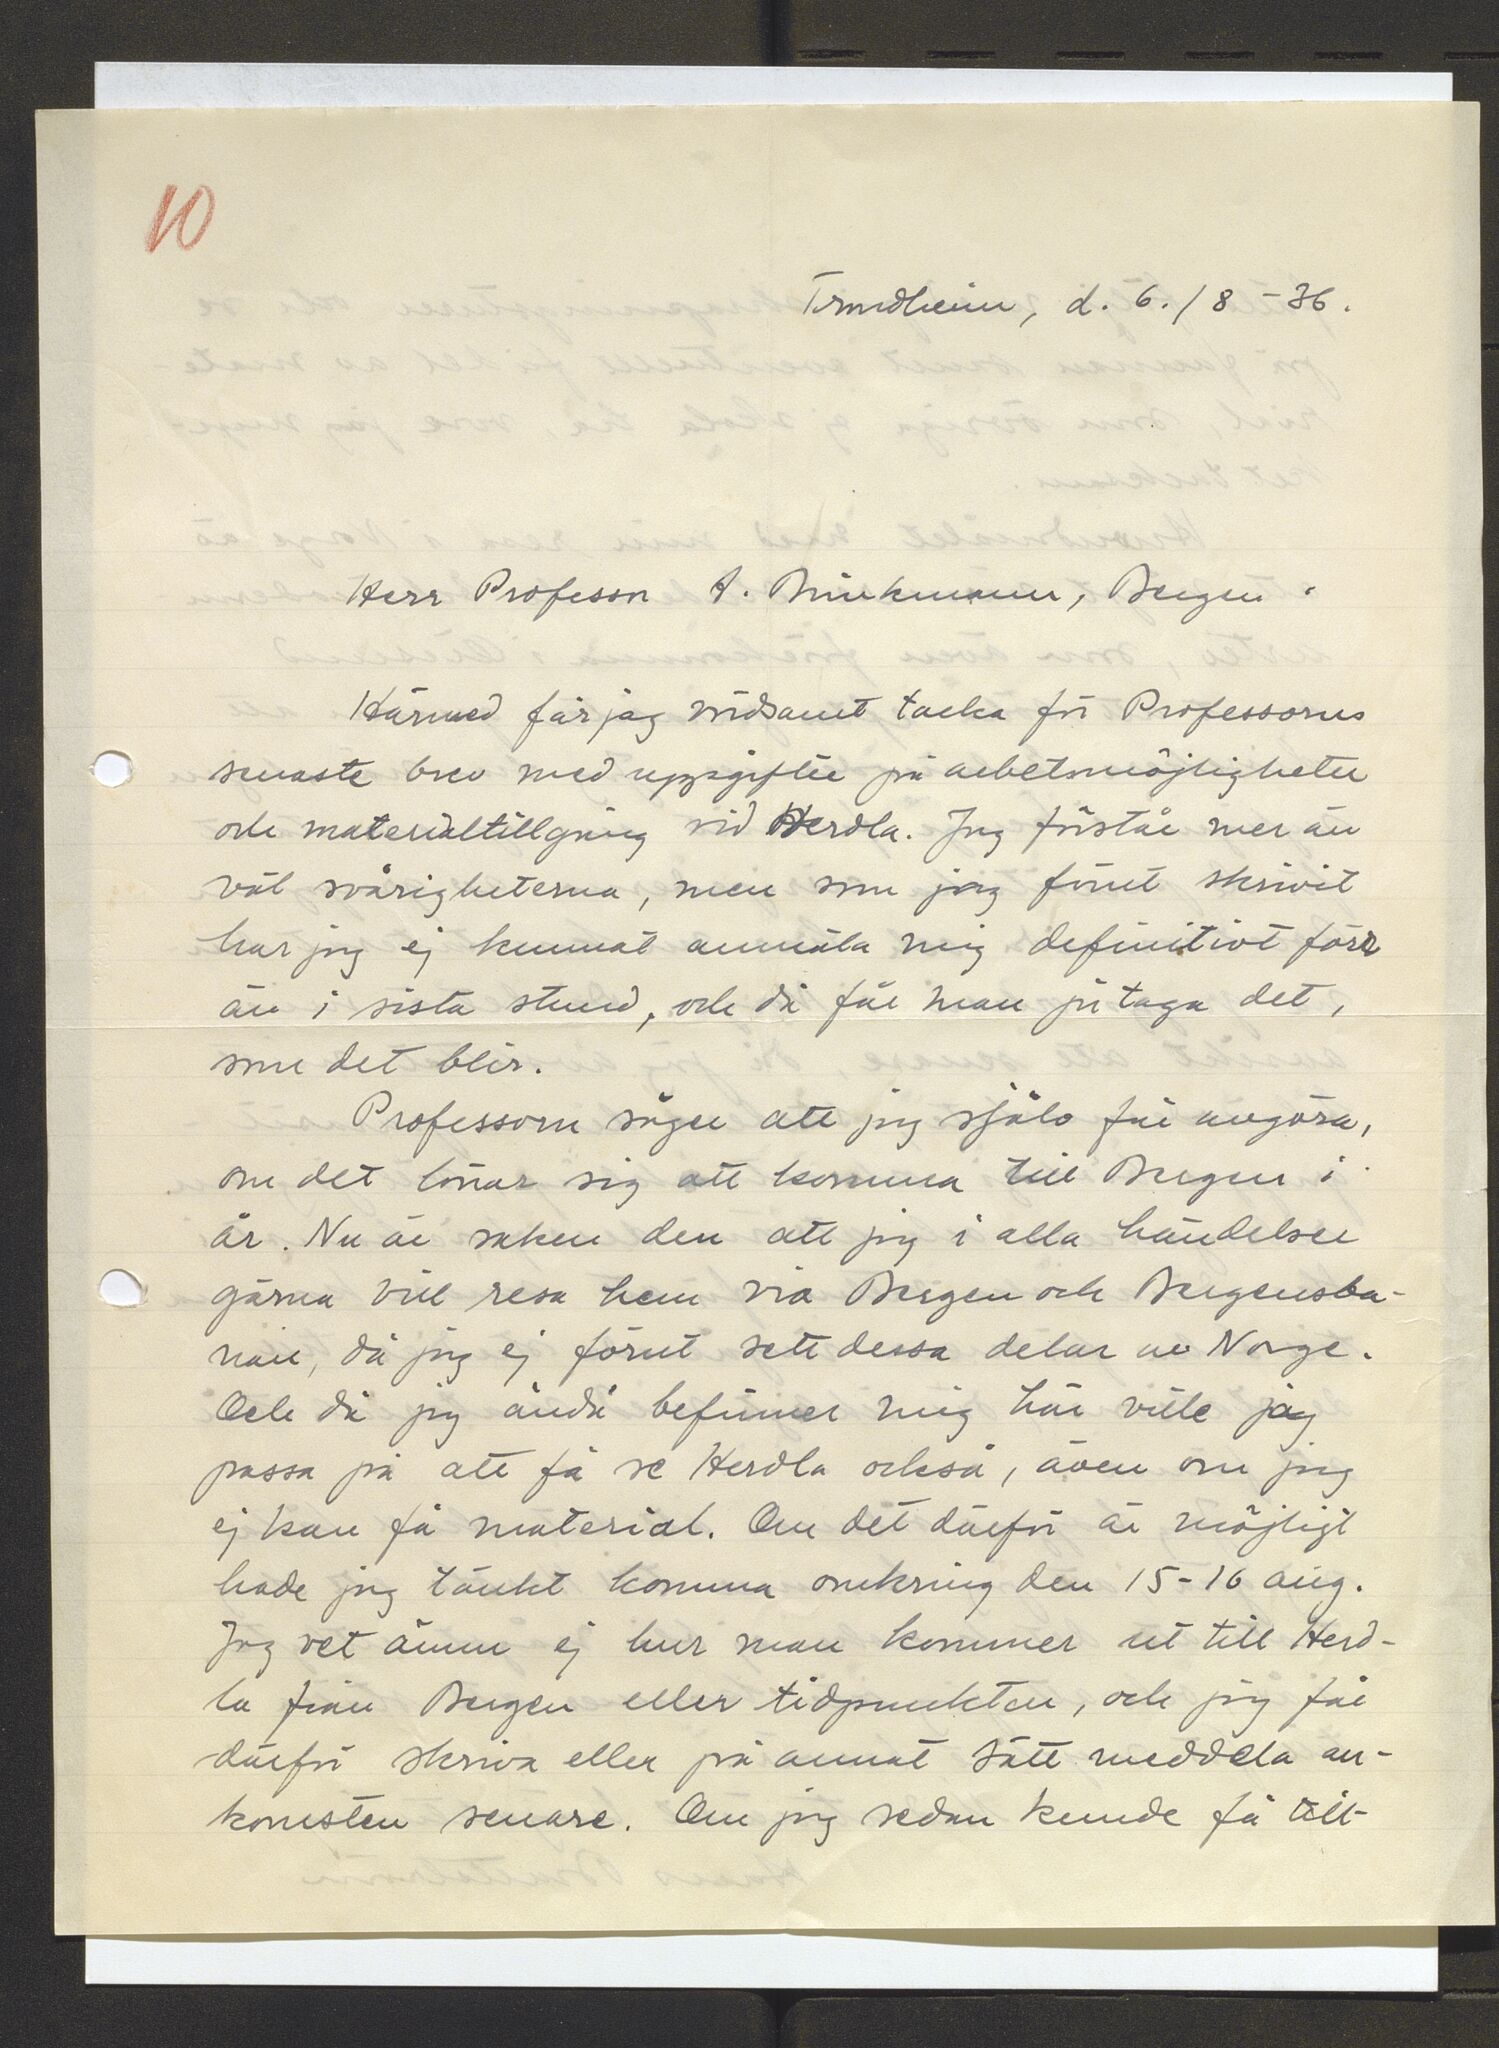 10
Trondheim, d. 6./8 -36.
Herr Professor A. Brinkmann, Bergen.
Härmed får jag vördsamt tacka för Professorns
senaste brev med uppgifter på arbetsmöjligheter
och materialtillgång vid Herdla. Jag förstår mer än
väl svårigheterna, men som jag förut skrivit
har jag ej kunnat anmäla mig definitivt förr
än i sista stund, och då får man ju taga det,
som det blir.
Professorn säger att jag själv får avgöra,
om det lönar sig att komma till Bergen i
år. Nu är saken den att jag i alla händelser
gärna vill resa hem via Bergen och Bergensba-
nan, då jag ej förut sett dessa delar av Norge.
Och då jag ändå befinner mig här ville jag
passa på att få se Herdla också, även om jag
ej kan få material. Om det därför är möjligt
hade jag tänkt komma omkring den 15-16 aug.
Jag vet ännu ej hur man kommer ut till Herd-
la från Bergen eller tidpunkten, och jag får
därför skriva eller på annat sätt meddela an-
komsten senare. Om jag sedan kunde få till-